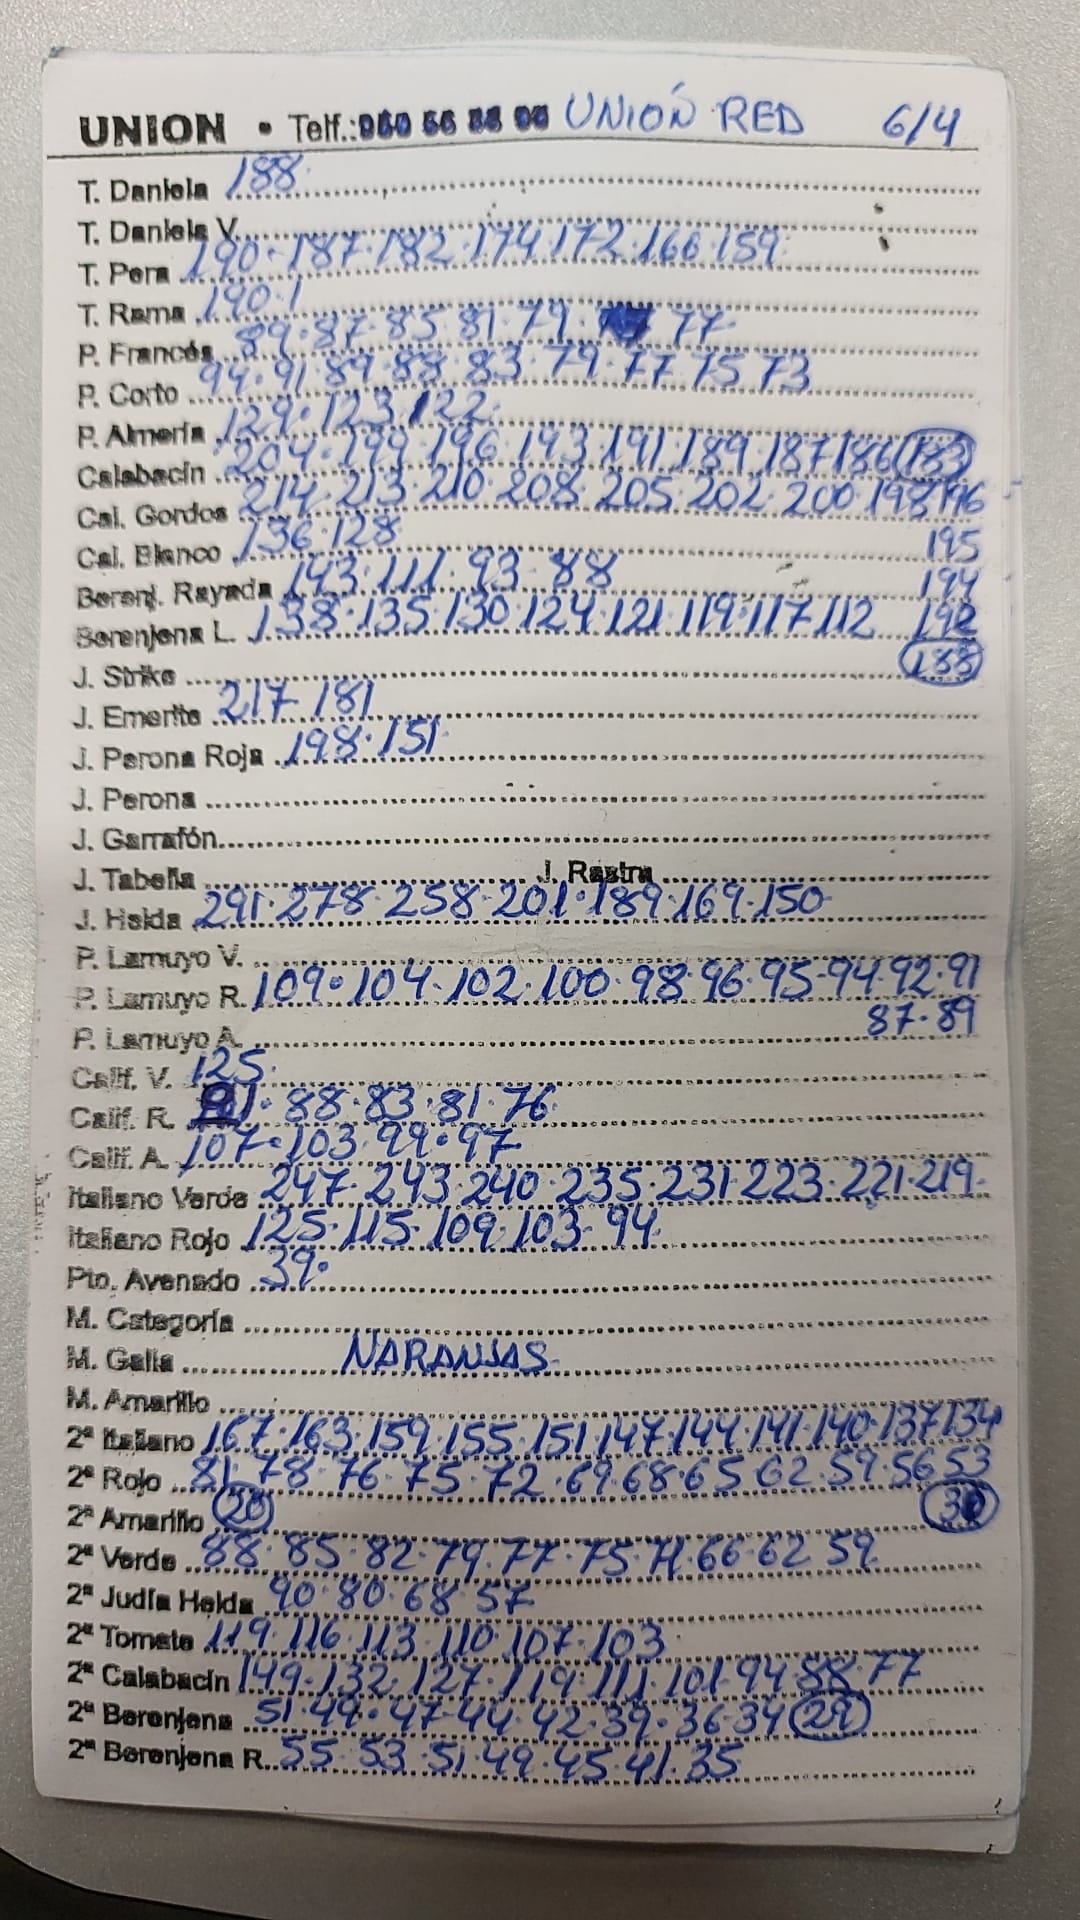 UNION • Telf.: UNIÓN RED 6/4
T. Daniela 188.
T. Daniela V.
T. Pera 190. 187. 182. 174 172. 166. 159.
T. Rama 190.1
P. Francés 89. 87. 85 81. 79. 77.
P. Corto 94. 91. 89. 88. 83. 79. 77 75 73
P. Almería 129. 123 122.
Calabacín 204. 199. 196. 193. 191. 189. 187 186 183
Cal. Gordos 214. 213. 210. 208. 205. 202. 200. 198 196
Cal. Blanco 136. 128 195
Berenj. Rayada 143. 111. 93. 88 194
Berenjena L. 138. 135. 130. 124. 121. 119. 117. 112 192
J. Strike 188
J. Emerite 217. 181
J. Perona Roja 198. 151.
J. Perona
J. Garrafón
J. Tabella J. Rastra
J. Helda 291. 278. 258. 201. 189. 169. 150
P. Lamuyo V.
P. Lamuyo R. 109. 104. 102. 100. 98. 96. 95. 94. 92. 91
P. Lamuyo A. 87. 89
Calif. V. 125.
Calif. R. 91. 88. 83. 81. 76.
Calif. A. 107. 103. 99. 97.
Italiano Verde 247. 243. 240. 235. 231. 223. 221. 219.
Italiano Rojo 125. 115. 109. 103. 94.
Pto. Avenado 39.
M. Categoría
M. Galia NARANJAS.
M. Amarillo
2ª Italiano 167. 163. 159. 155. 151. 147. 144. 141. 140. 137 134
2ª Rojo 81. 78. 76. 75. 72. 69. 68. 65 62. 59. 56 53
2ª Amarillo 20
2ª Verde 88. 85. 82. 79. 77. 75. 71. 66. 62 59.
2ª Judía Helda 90. 80. 68. 57.
2ª Tomate 119. 116. 113. 110. 107. 103.
2ª Calabacín 149. 132. 127. 119. 111. 101. 94. 88. 77
2ª Berenjena 51. 49. 47. 44. 42. 39. 36. 34 29
2ª Berenjena R. 55. 53. 51. 49. 45. 41. 35